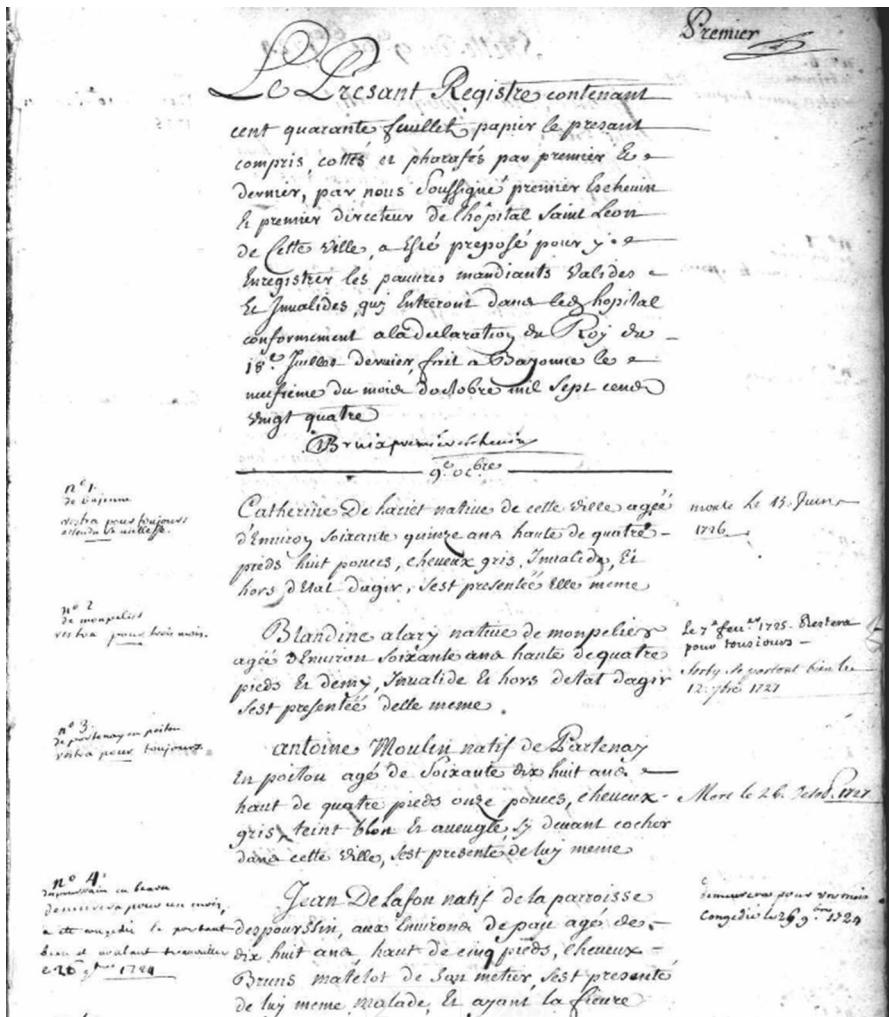 Premier
Le Présant Registre contenant
cent quarante feuillet papier le presant
compris, cottés et pharafés par premier Et
dernier, par nous Soussigné premier Eschevin
Et premier directeur de l'hôpital Saint Leon
de Cette ville, a Esté preposé pour y
Enregistrer les pauvres mandiants valides
Et Invalides, quy Entreront dans led hopital
conformement a la declaration du Roy du
18e Juillet dernier, fait a Bayonne le
neufvieme du mois doctobre mil sept cends
vingt quatre
premier eschevin
9e 8bre
n° 1.
de bajonne
restra pour toujours
attendu sa vieillesse.
Catherine De hariet native de cette ville agéé
d'Environ soixante quinze ans haute de quatre
pieds huit pouces, cheveux gris, Invalide, Et
hors d'Etat dagir, s'est presentéé Elle meme
morte Le 15. Juin
1726
n° 2
de monpelier
restra pour trois mois.
Blandine alary native de monpelier
agéé d'Environ soixante ans haute de quatre
pieds Et demy, Invalide Et hors detat dagir
s'est presentéé delle meme
Le 7e feur 1725. Restera
pour tousjours
se portant bien le
12. 7bre 1727
n° 3.
de partenay en poitou
restra pour toujours
antoine Moulin natif de Partenay
En poitou agé de Soixante dix huit ans
haut de quatre pieds onze pouces, cheveux
gris, teint blon Et aveugle, cy devant cocher
dans cette ville, s'est presenté de luy meme
Mort le 26. 1727
n° 4.
en bearn
demeurera pour un mois,
a eté congedié se portant
bien et voulant travailler
le 26 9bre 1724
Jean De Lafon natif de la parroisse
despourssin, aux Environs de pau agé de
dix huit ans, haut de cinq pieds, cheveux
Bruns matelot de son metier, s'est presenté
de luy meme malade, Et ayant la fievre
demeurera pour un mois
Congedié le 26 9bre 1724